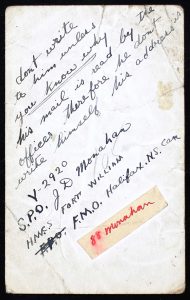 dont write
to him unless
you know why the
his mail is read by
officer therefore he dont
write himself his address is
V-2920
S.P.O. J D Monahan
HMCS FORT WILLIAM
F.M.O. Halifax, N.S. Can
88 monahan